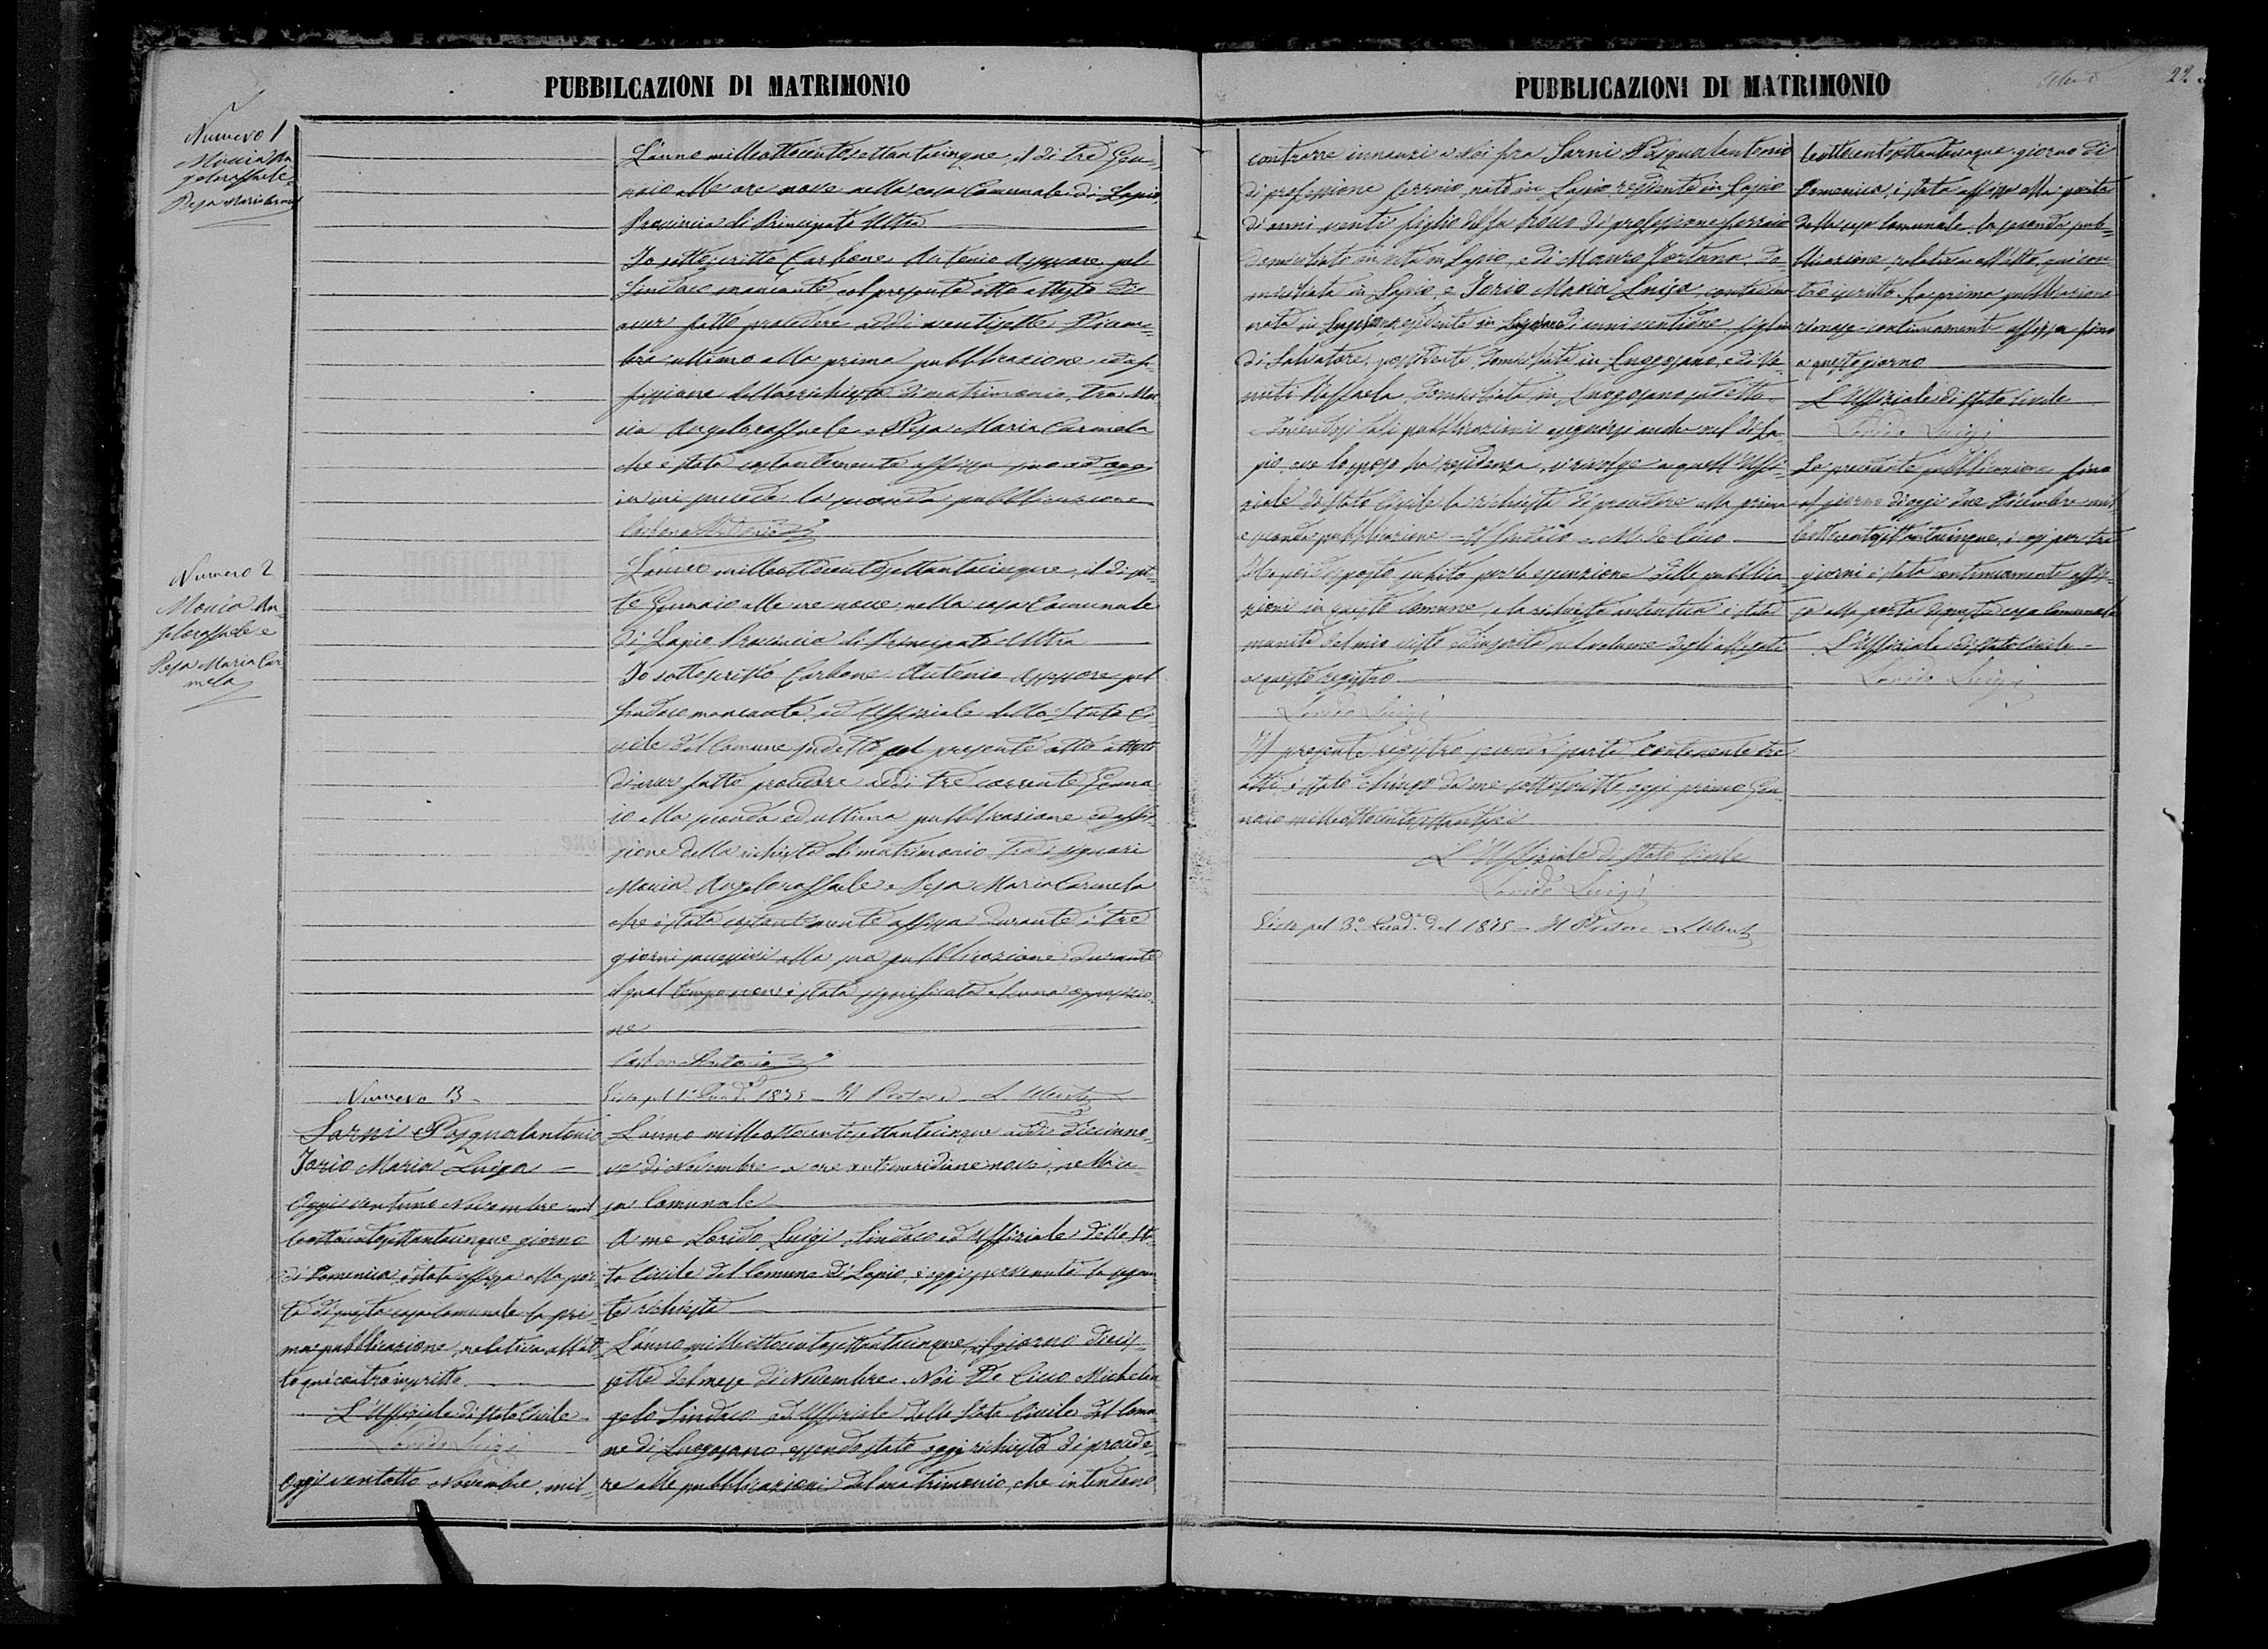 PUBBILCAZIONI DI MATRIMONIO
Numero 1
Moccia An
geloraffaele
Pesa Maria Carmela
L'anno milleottocentosettantacinque, il dì tre Gen-
naio alle ore nove nella casa Comunale di Lapio,
Provincia di Principato Ultra
Io sottoscritto Carbone Antonio Assessore pel
Sindaco mancante col presente atto attesto di
aver fatto procedere addì ventisette Dicem-
bre ultimo alla prima pubblicazione ed af-
fissione della richiesta di matrimonio tra Moc-
cia Angeloraffaele e Pesa Maria Carmela
che è stata costantemente affissa fino ad oggi
in cui procede la seconda pubblicazione
Carbone Antonio
Numero 2
Moccia An-
geloraffaele e
Pesa Maria Car
mela
L'anno milleottocentosettantacinque, il dì set-
te Gennaio alle ore nove nella casa Comunale
di Lapio Provincia di Principato Ultra
Io sottoscritto Carbone Antonio Assessore pel
Sindaco mancante, ed Uffiziale dello Stato Ci-
vile del Comune sudetto col presente atto attesto
di aver fatto procedere addì tre corrente Genna-
io alla seconda ed ultima pubblicazione ed affis-
sione della richiesta di matrimonio tra i signori
Moccia Angeloraffaele e Pesa Maria Carmela
che è stata costantemente affissa durante i tre
giorni successivi alla sua pubblicazione durante
il qual tempo non è stata significata alcuna opposizio-
ne
Carbone Antonio
Visto pel 1° Quad. 1875 - Il Pretore
Numero 3
Sarni Pasqualantonio
Iorio Maria Luigia
Oggi ventuno Novembre mil
leottocentosettantacinque giorno
di Domenica, è stata affissa alla por-
ta di questa casa Comunale la pri-
ma pubblicazione, relativa all'at-
to qui controscritto
L'Uffiziale di Stato Civile
Luigi
Oggi ventotto Novembre, mil-
L'anno milleottocentosettantacinque addì diecinno-
ve di Novembre a ore antimeridiane nove, nella ca-
sa Comunale
A me Luigi, Sindaco ed Uffiziale dello Sta-
to Civile del Comune di Lapio, è oggi pervenuta la seguen-
te richiesta
L'anno milleottocentosettantacinque, il giorno dicias-
sette del mese di Novembre. Noi De Cicco Michelan-
gelo Sindaco ed Uffiziale dello Stato Civile del Comu-
ne di Luogosano, essendo stato oggi richiesto di procede-
re alle pubblicazioni del matrimonio, che intendono
PUBBLICAZIONI DI MATRIMONIO
22
contrarre innanzi a Noi fra Sarni Pasqualantonio
di professione ferraio, nato in Lapio, residente in Lapio
di anni venti figlio del fu Rocco di professione ferraio
domiciliato in vita in Lapio, e di Mauro Fortuna, do-
miciliata in Lapio, e Iorio Maria Luigia, contadina
nata in Luogosano, residente in Luogosano di anni ventidue, figlia
di Salvatore, possidente, domiciliato in Luogosano, e di
Raffaela, domiciliata in Luogosano sudetto
Dovendosi tali pubblicazioni eseguirsi anche nel di La-
pio, ove lo sposo ha residenza, si rivolge a quell'Uffi-
ziale di Stato Civile la richiesta di procedere alla prima
e seconda pubblicazione - Il Sindaco - M. De Cicco
Ho poi disposto subito per la esecuzione delle pubblica-
zioni in questo Comune, e la richiesta autentica è stata
munita del mio visto ed inserita nel volume degli allegati
a questo registro
Luigi
Il presente registro seconda parte contenente tre
atti è stato chiuso da me sottoscritto oggi primo Gen-
naio milleottocentosettantasei
L'Uffiziale di Stato Civile
Luigi
Visto pel 3° Quad. del 1875 - Il Pretore
leottocentosettantacinque giorno di
Domenica, è stata affissa alla porta
della casa Comunale la seconda pub-
blicazione, relativa all'atto, qui con-
troscritto. La prima pubblicazione
rimase continuamente affissa fino
a questo giorno
L'Uffiziale di Stato Civile
Luigi
La precedente pubblicazione fino
al giorno di oggi due Dicembre mil-
leottocentosettantacinque, e cioè per tre
giorni è stata continuamente affis-
sa alla porta di questa casa Comunale
L'Uffiziale di Stato Civile
Luigi